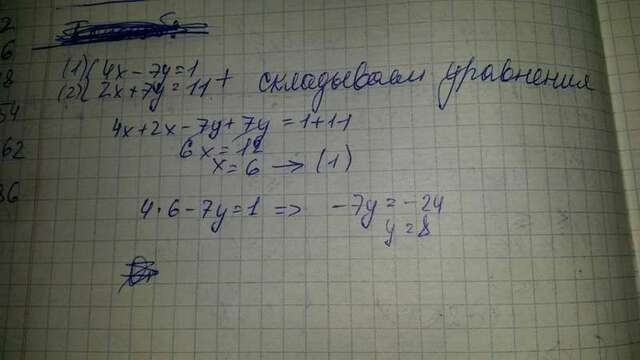 (1) { 4x - 7y = 1
(2) { 2x + 7y = 11 + складываем уравнения
4x + 2x - 7y + 7y = 1 + 11
6x = 12
x = 6 → (1)
4 · 6 - 7y = 1 => -7y = -24
y = 8
2
6
8
54
62
36